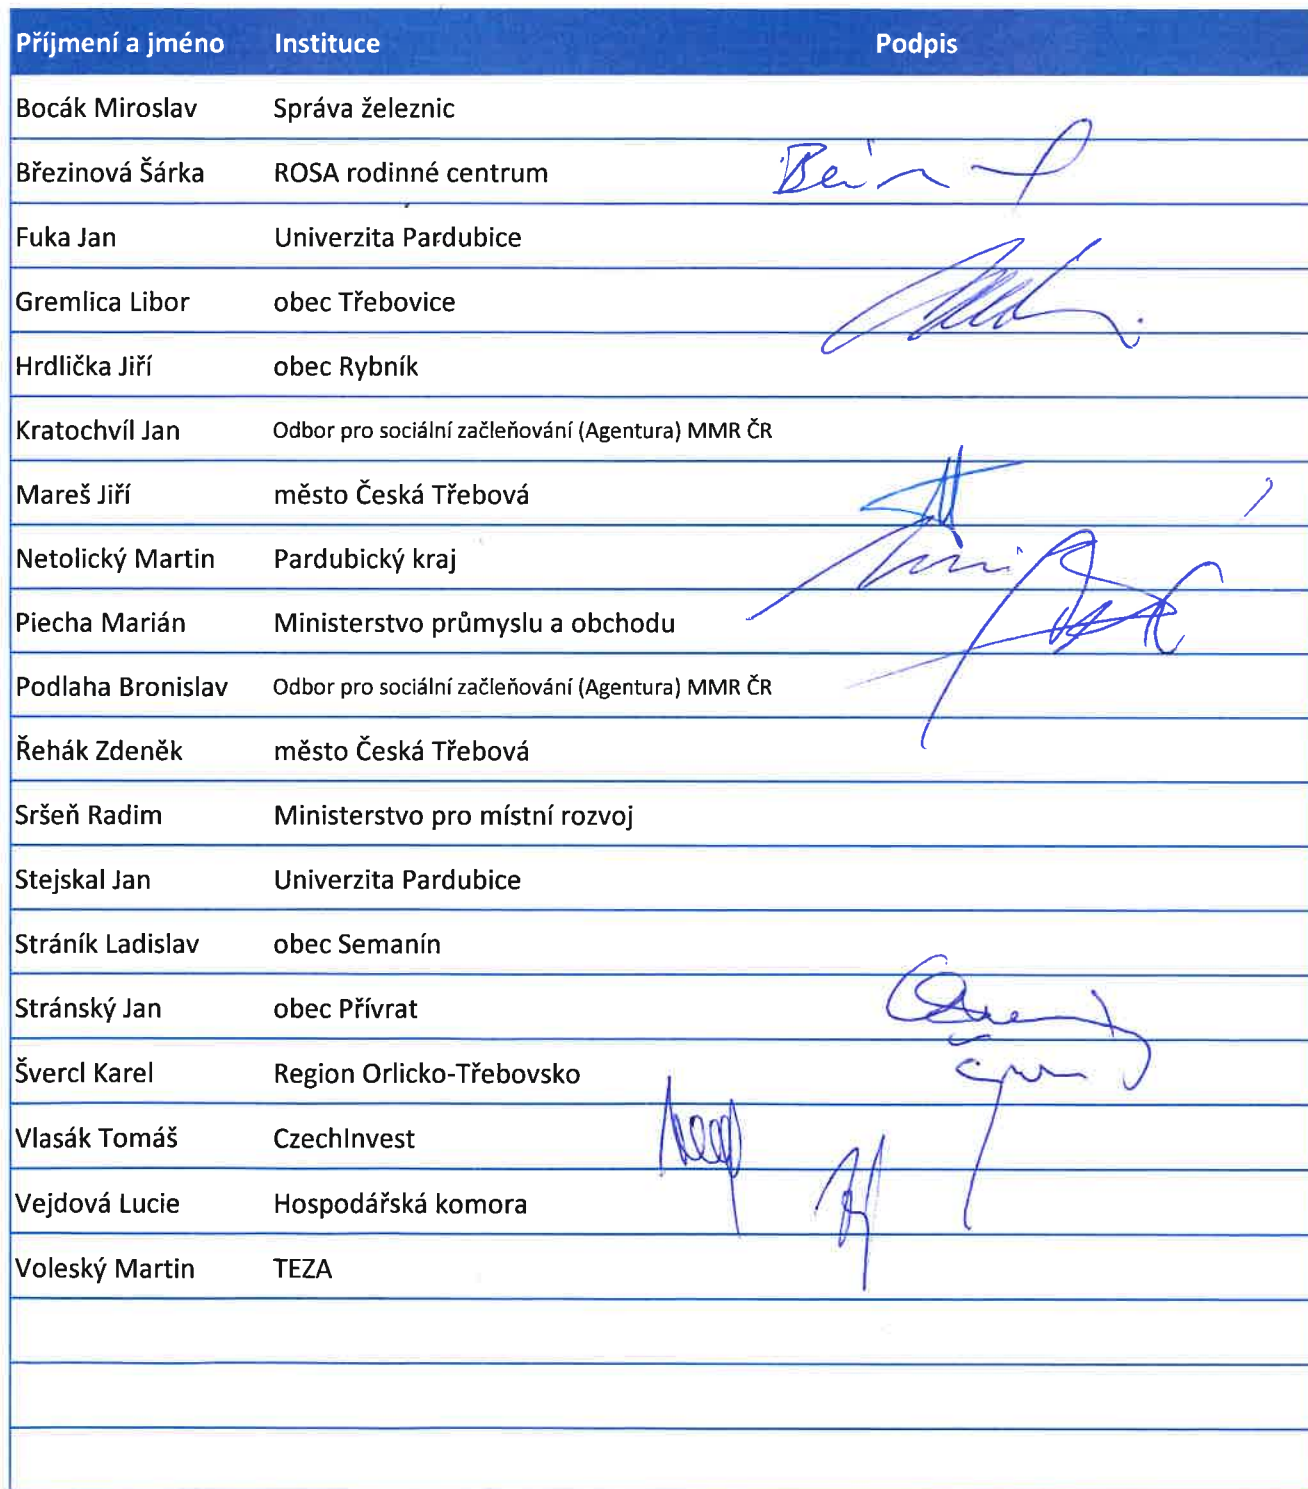 Příjmení a jméno Instituce Podpis
Bocák Miroslav Správa železnic
Březinová Šárka ROSA rodinné centrum
Fuka Jan Univerzita Pardubice
Gremlica Libor obec Třebovice
Hrdlička Jiří obec Rybník
Kratochvíl Jan Odbor pro sociální začleňování (Agentura) MMR ČR
Mareš Jiří město Česká Třebová
Netolický Martin Pardubický kraj
Piecha Marián Ministerstvo průmyslu a obchodu
Podlaha Bronislav Odbor pro sociální začleňování (Agentura) MMR ČR
Řehák Zdeněk město Česká Třebová
Sršeň Radim Ministerstvo pro místní rozvoj
Stejskal Jan Univerzita Pardubice
Stráník Ladislav obec Semanín
Stránský Jan obec Přívrat
Švercl Karel Region Orlicko-Třebovsko
Vlasák Tomáš CzechInvest
Vejdová Lucie Hospodářská komora
Voleský Martin TEZA